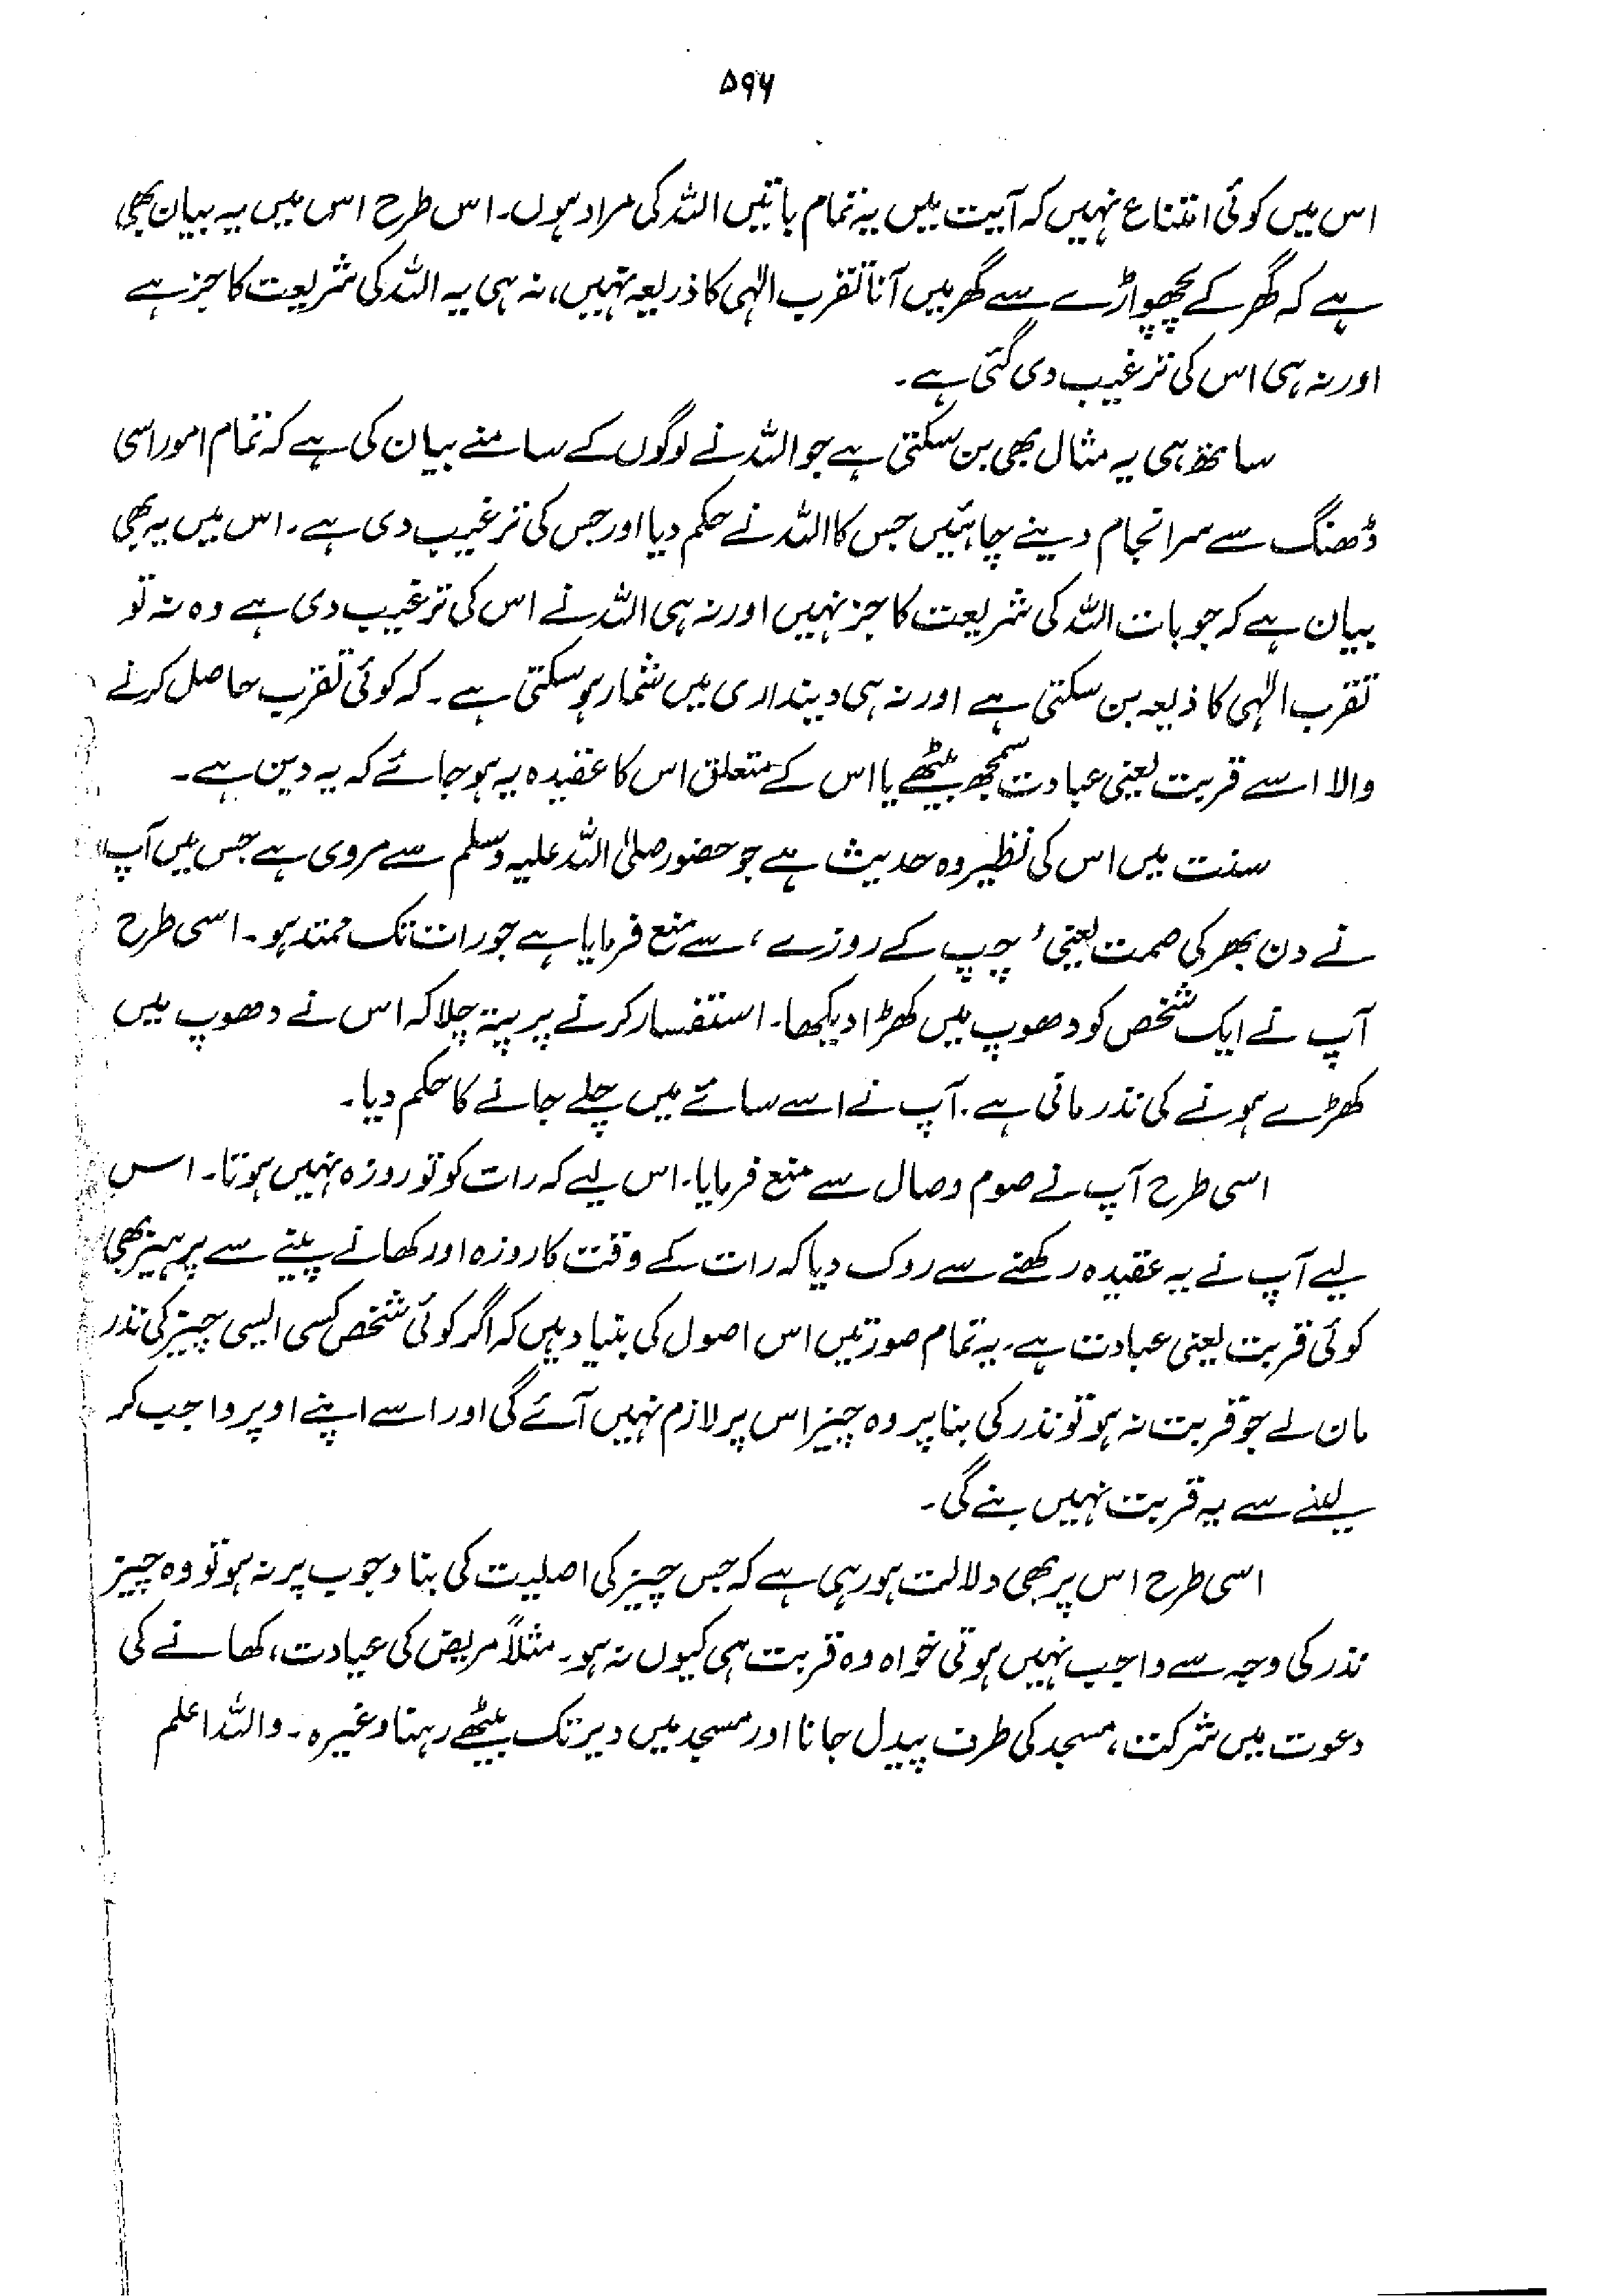 ۵۹۶
اس میں کوئی امتناع نہیں کہ آیت میں یہ تمام باتیں اللہ کی مراد ہوں۔ اس طرح اس میں یہ بیان بھی
ہے کہ گھر کے پچھواڑے سے گھر میں آنا تقرب الٰہی کا ذریعہ نہیں، نہ ہی یہ اللہ کی شریعت کا جز ہے
اور نہ ہی اس کی ترغیب دی گئی ہے۔
ساتھ ہی یہ مثال بھی بن سکتی ہے جو اللہ نے لوگوں کے سامنے بیان کی ہے کہ تمام امور اسی
ڈھنگ سے سرانجام دینے چاہئیں جس کا اللہ نے حکم دیا اور جس کی ترغیب دی ہے۔ اس میں یہ بھی
بیان ہے کہ جو بات اللہ کی شریعت کا جز نہیں اور نہ ہی اللہ نے اس کی ترغیب دی ہے وہ نہ تو
تقرب الٰہی کا ذیعہ بن سکتی ہے اور نہ ہی دینداری میں شمار ہو سکتی ہے۔ کہ کوئی تقرب حاصل کرنے
والا اسے قربت یعنی عبادت سمجھ بیٹھے یا اس کے متعلق اس کا عقیدہ یہ ہو جائے کہ یہ دین ہے۔
سنت میں اس کی نظیر وہ حدیث ہے جو حضور صلی اللہ علیہ وسلم سے مروی ہے جس میں آپ
نے دن بھر کی صمت یعنی ’چپ کے روزے‘ سے منع فرمایا ہے جو رات تک ممتد ہو۔ اسی طرح
آپ نے ایک شخص کو دھوپ میں کھڑا دیکھا۔ استفسار کرنے پر پتہ چلا کہ اس نے دھوپ میں
کھڑے ہونے کی نذر مانی ہے۔ آپ نے اسے سائے میں چلے جانے کا حکم دیا۔
اسی طرح آپ نے صوم وصال سے منع فرمایا۔ اس لیے کہ رات کو تو روزہ نہیں ہوتا۔ اس
لیے آپ نے یہ عقیدہ رکھنے سے روک دیا کہ رات کے وقت کا روزہ اور کھانے پینے سے پرہیز بھی
کوئی قربت یعنی عبادت ہے۔ یہ تمام صورتیں اس اصول کی بنیاد ہیں کہ اگر کوئی شخص کسی ایسی چیز کی نذر
مان لے جو قربت نہ ہو تو نذر کی بنا پر وہ چیز اس پر لازم نہیں آئے گی اور اسے اپنے اوپر واجب کر
لینے سے یہ قربت نہیں بنے گی۔
اسی طرح اس پر بھی دلالت ہو رہی ہے کہ جس چیز کی اصلیت کی بنا وجوب پر نہ ہو تو وہ چیز
نذر کی وجہ سے واجب نہیں ہوتی خواہ وہ قربت ہی کیوں نہ ہو۔ مثلاً مریض کی عیادت، کھانے کی
دعوت میں شرکت، مسجد کی طرف پیدل جانا اور مسجد میں دیر تک بیٹھے رہنا وغیرہ۔ واللہ اعلم